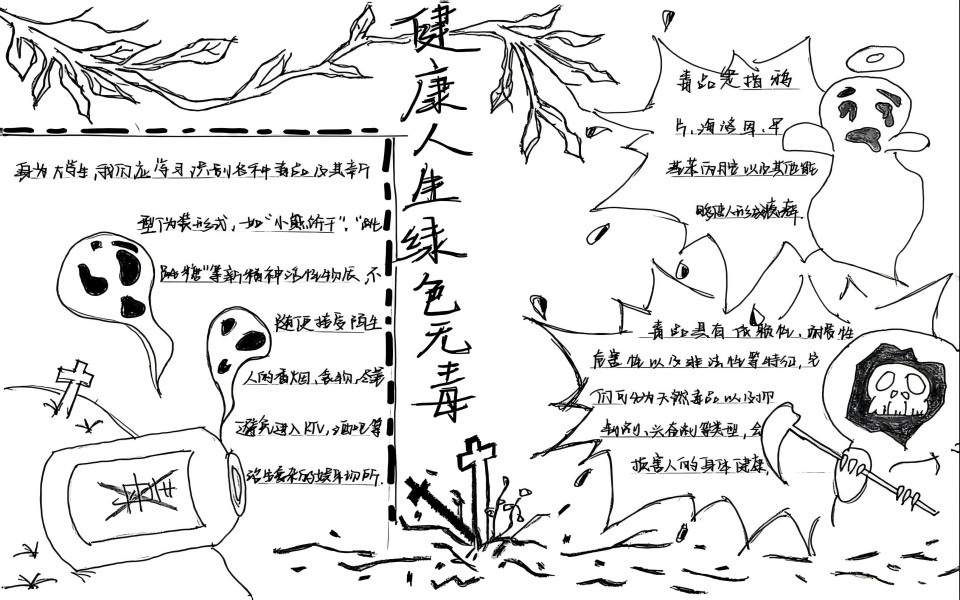 健康人生绿色无毒
身为大学生,我们应学习识别各种毒品及其新
型伪装形式,如“小熊饼干”,“跳
跳糖”等新精神活性物质,不
随便接受陌生
人的香烟,食物,尽量
避免进入KTV,酒吧等
治安复杂的娱乐场所.
毒品是指鸦
片,海洛因,甲
基苯丙胺以及其他能
够使人形成瘾癖.
毒品具有成瘾性,耐受性
危害性以及非法性等特征,它
们可分为天然毒品以及抑
制剂、兴奋剂等类型,会
损害人的身体健康.